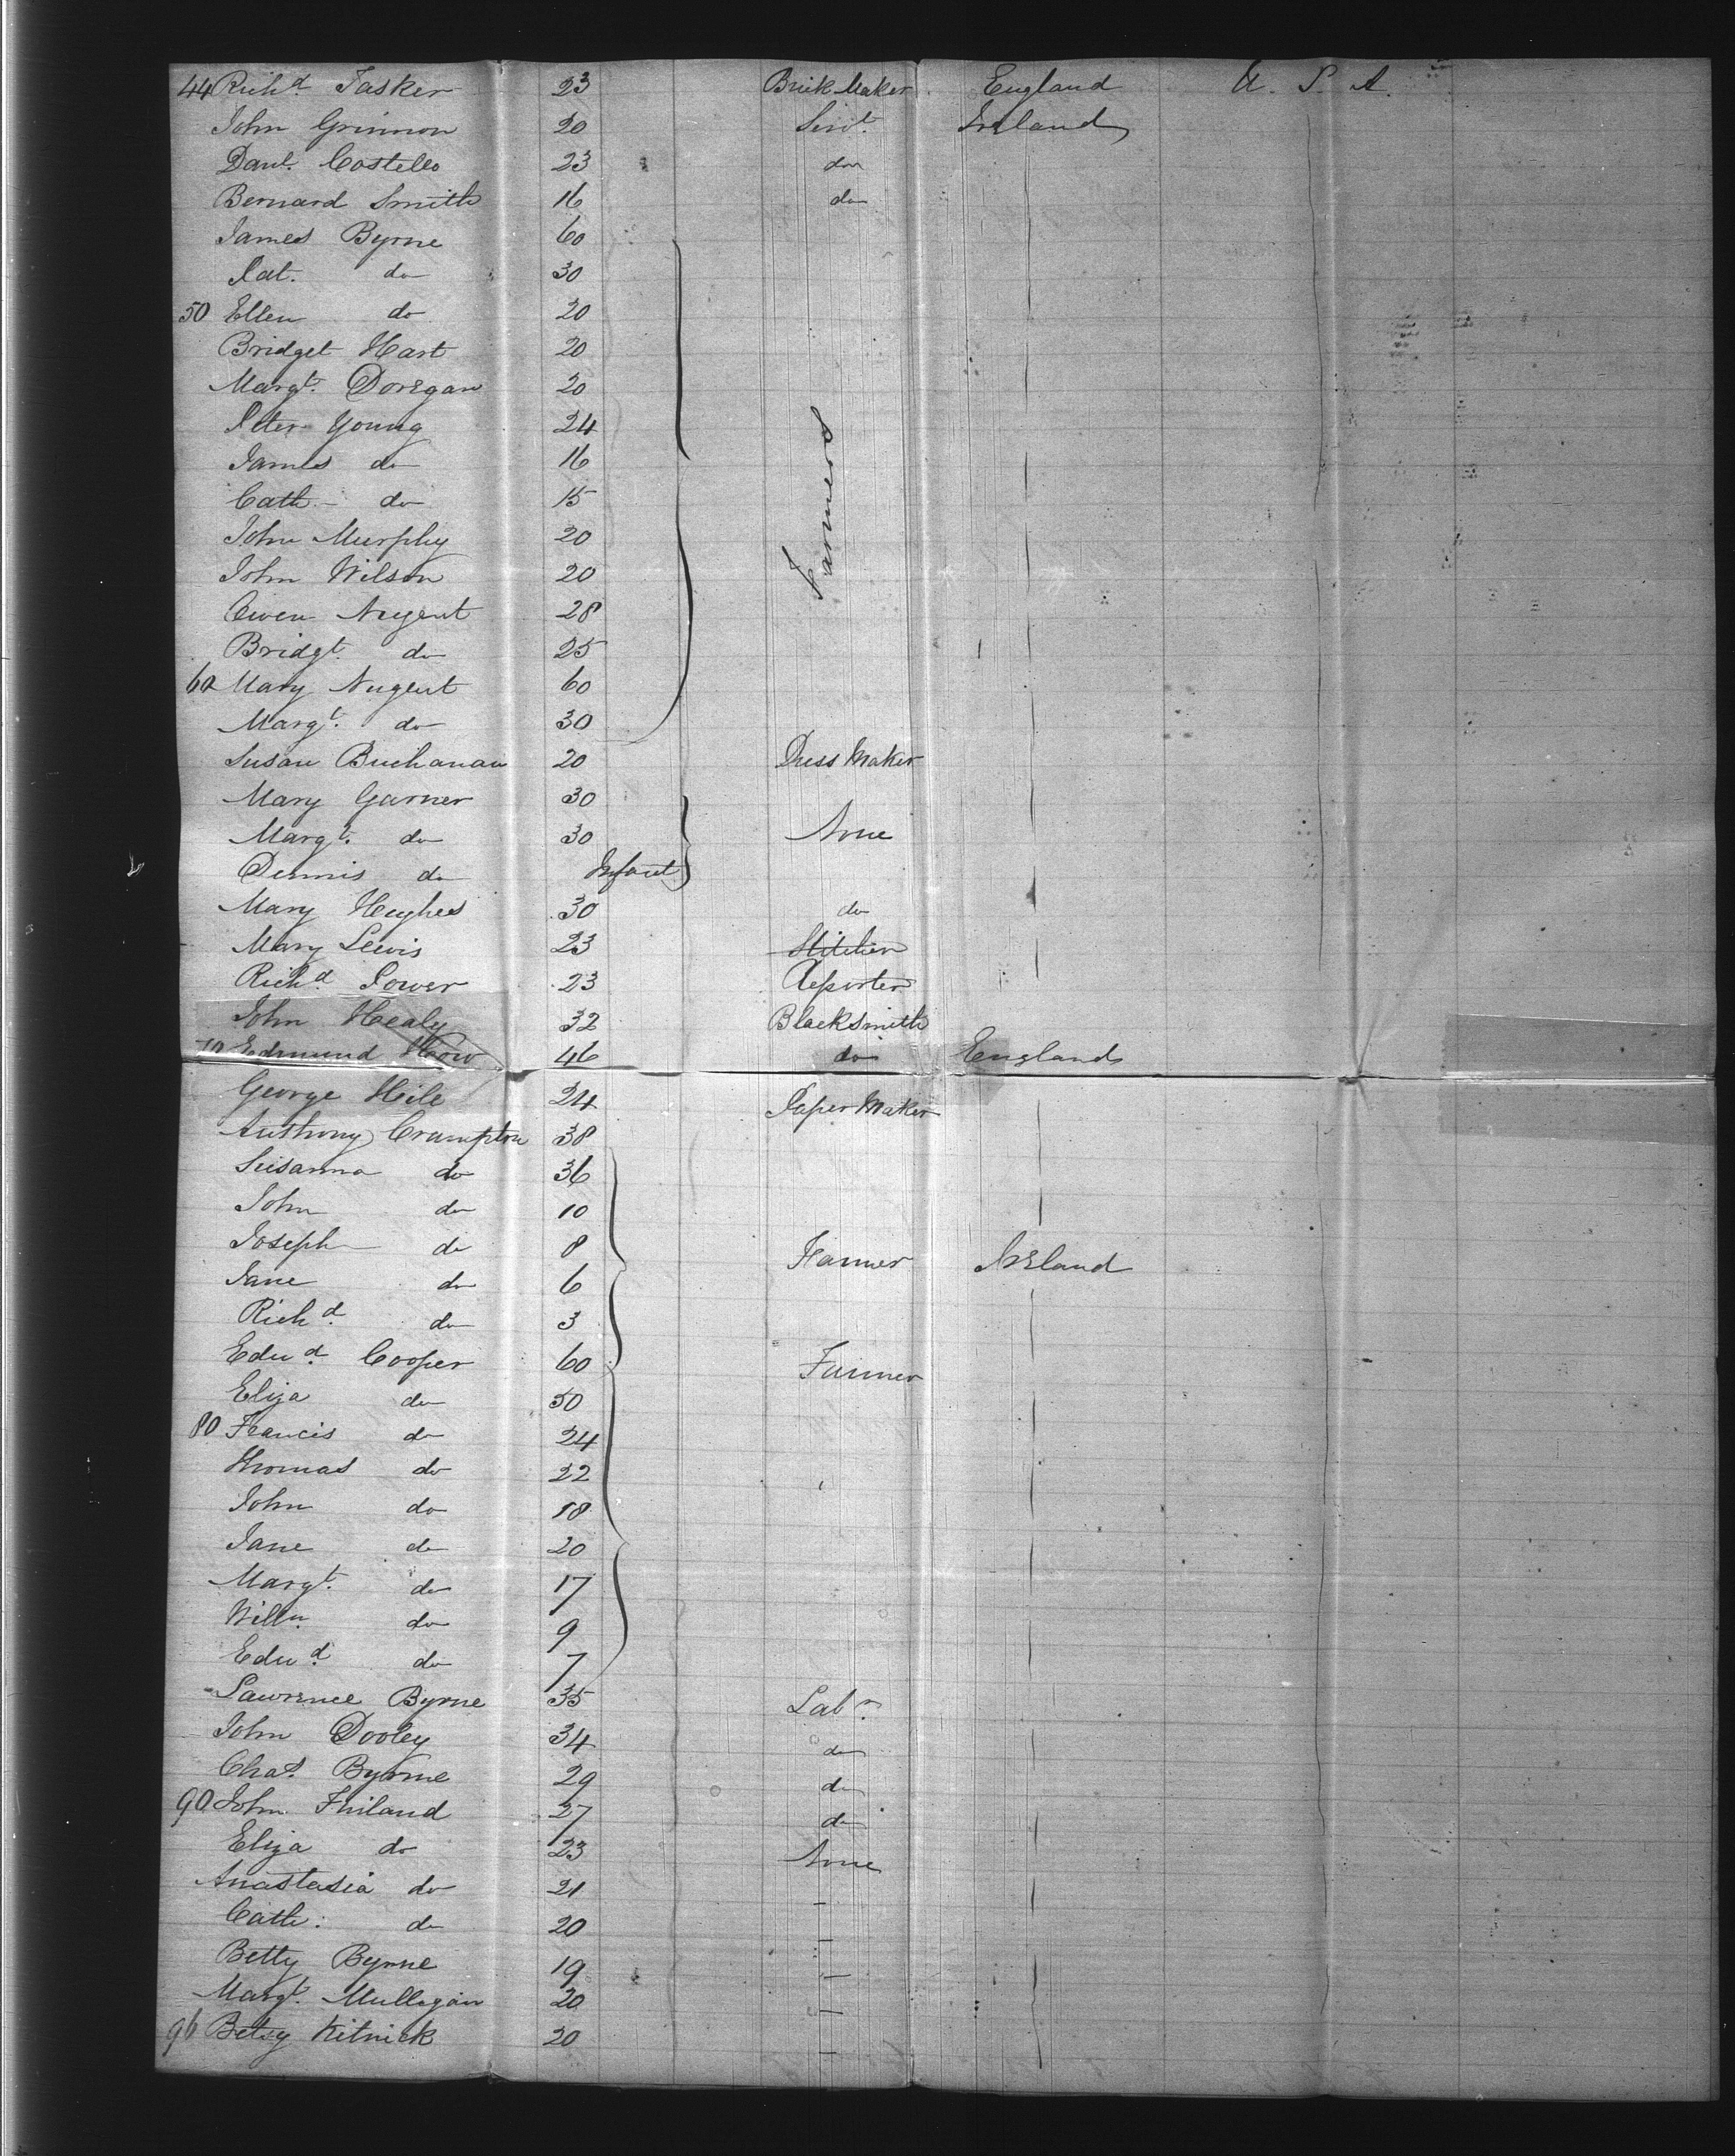 44 Richd. Tasker 23 Brick Maker England U. S. A.
John Grinnon 20 Servt. Ireland
Danl. Costello 23 do
Bernard Smith 16 do
James Byrne 60
Pat. do 30
50 Ellen do 20
Bridget Hart 20
Margt. Doregan 20
Peter Young 24
James do 16
Cath do 15
Farmers
John Murphy 20
John Wilson 20
Owen Nugent 28
Bridgt. do 25
60 Mary Nugent 60
Margt. do 30
Susan Buchanan 20 Dress Maker
Mary Garner 30
Margt. do 30 None
Dennis do Infant
Mary Hughes 30 do
Mary Lewis 23
Richd. Power 23 Reporter
John Healy 32 Blacksmith
70 Edmund How 46 do England
George Hile 24 Paper Maker
Anthony Crumpton 38
Susanna do 36
John do 10
Joseph do 8 Farmer Ireland
Jane do 6
Richd. do 3
Edwd. Cooper 60 Farmer
Eliza do 50
80 Francis do 24
Thomas do 22
John do 18
Jane do 20
Margt. do 17
Willm. do 9
Edwd. do 7
Lawrence Byrne 35 Labr.
John Dooley 34 do
Chas. Byrne 29 do
90 John Finland 27 do
Eliza do 23 None
Anastasia do 21 –
Cath: do 20 –
Betty Byrne 19 –
Margt. Mulligan 20 –
96 Betsy Kitnick 20 –